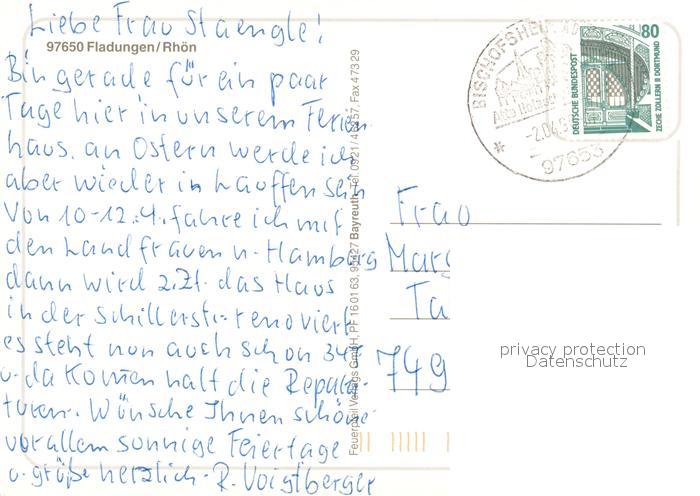 Liebe Frau Staengle!
97650 Fladungen/Rhön
Bin gerade für ein paar
Tage hier in unserem Ferien
haus. an Ostern werde ich
aber wieder in Lauffen sein
Von 10-12.4. fahre ich mit
den Landfrauen n. Hamburg
dann wird z.Zt. das Haus
in der Schillerstr. renoviert
es steht nun auch schon 34J
u. da kommen halt die Repara-
turen. Wünsche Ihnen schöne
vor allem sonnige Feiertage
u. grüße herzlich R. Voigtberger
Feuerpfeil Verlags GmbH, PF 16 01 63, 95427 Bayreuth, Tel. 0921/ Fax 47329
BISCHOFSHEIM
97653
80
DEUTSCHE BUNDESPOST
ZECHE ZOLLERN II DORTMUND
Frau
Marg
Ta
749
privacy protection
Datenschutz